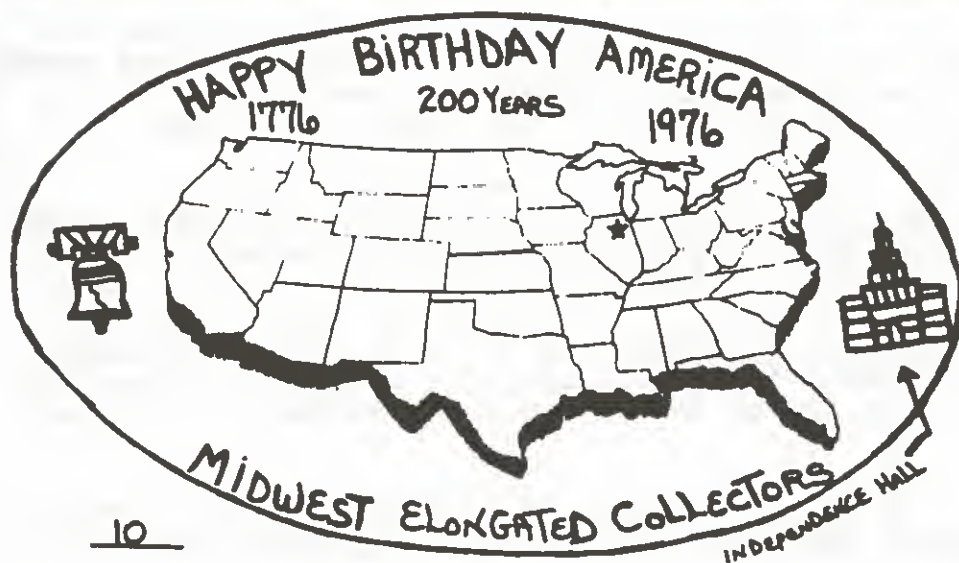 HAPPY BiRTHDAY AMERICA
1776 200 YEARS 1976
MiDWEST ELONGATED COLLECTORS
INDEPENDENCE HALL
10